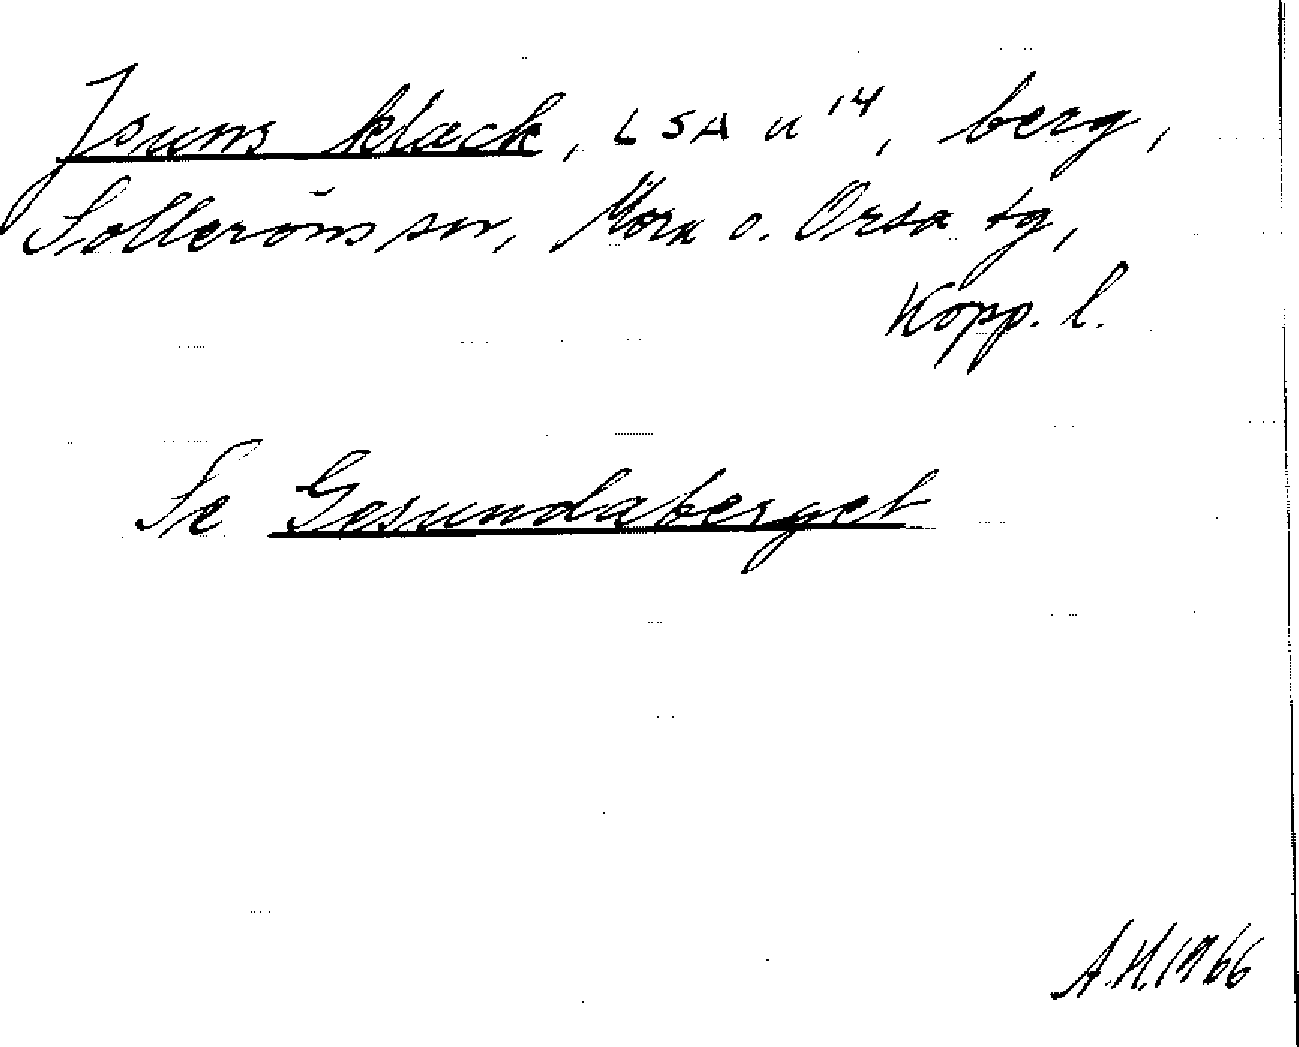 Jsuns klack, LSA U 14, berg,
Solleröns sn, Mora o. Orsa tg,
Kopp. l.
Se Gesundaberget
A.H. 1966